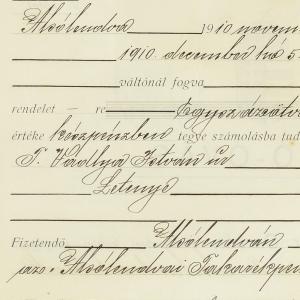 Alsólendva 1910 novem
1910 december hó 5
váltónál fogva
rendelet — re Egyszázötv
értéke készpénzben tegye számolásba tud
T. Vadlya István úr
Letenye
Fizetendő Alsólendván
az Alsólendvai Takarékpén